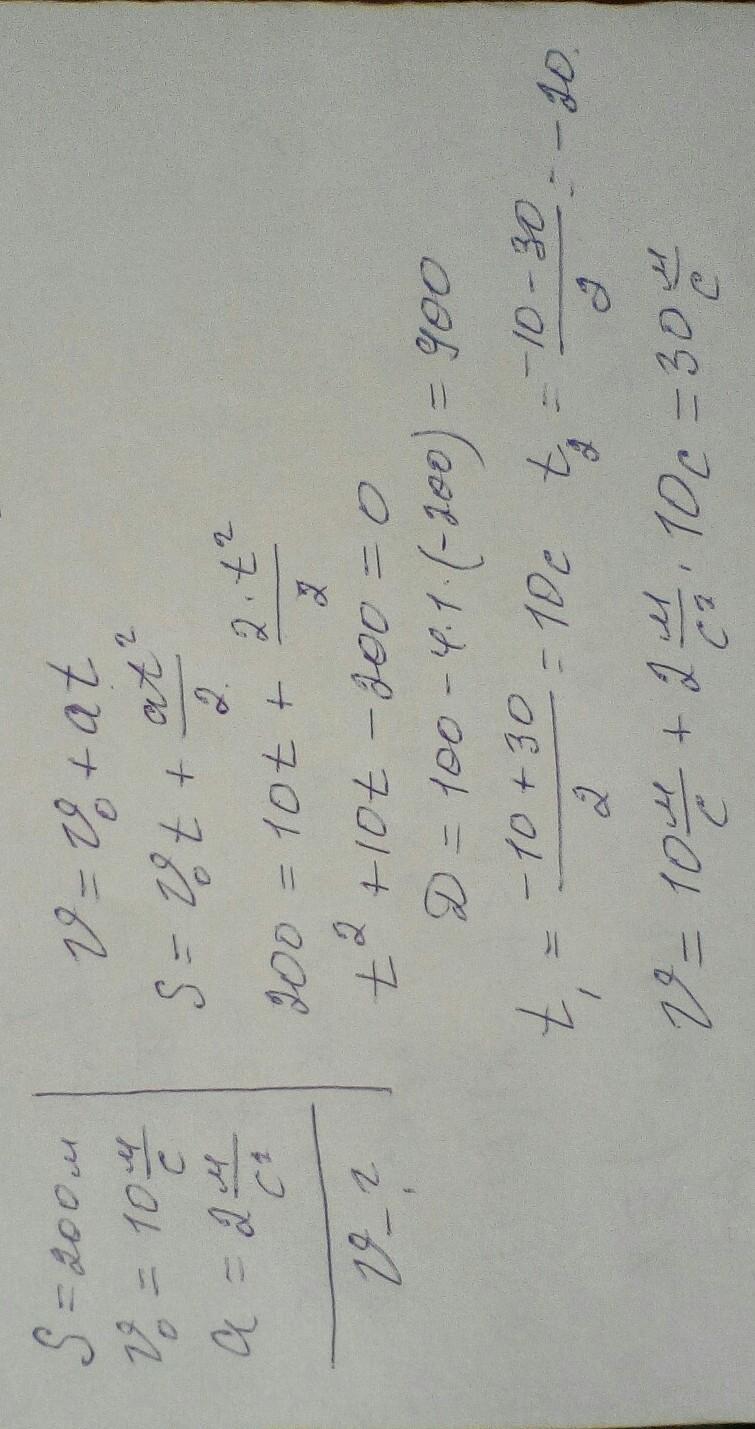 S = 200 м
v₀ = 10 м/с
a = 2 м/с²
v – ?
v = v₀ + at
S = v₀t + at²/2
200 = 10t + 2·t²/2
t² + 10t – 200 = 0
D = 100 – 4·1·(–200) = 900
t₁ = –10 + 30/2 = 10с t₂ = –10 – 30/2 = –20.
v = 10 м/с + 2 м/с² · 10с = 30 м/с